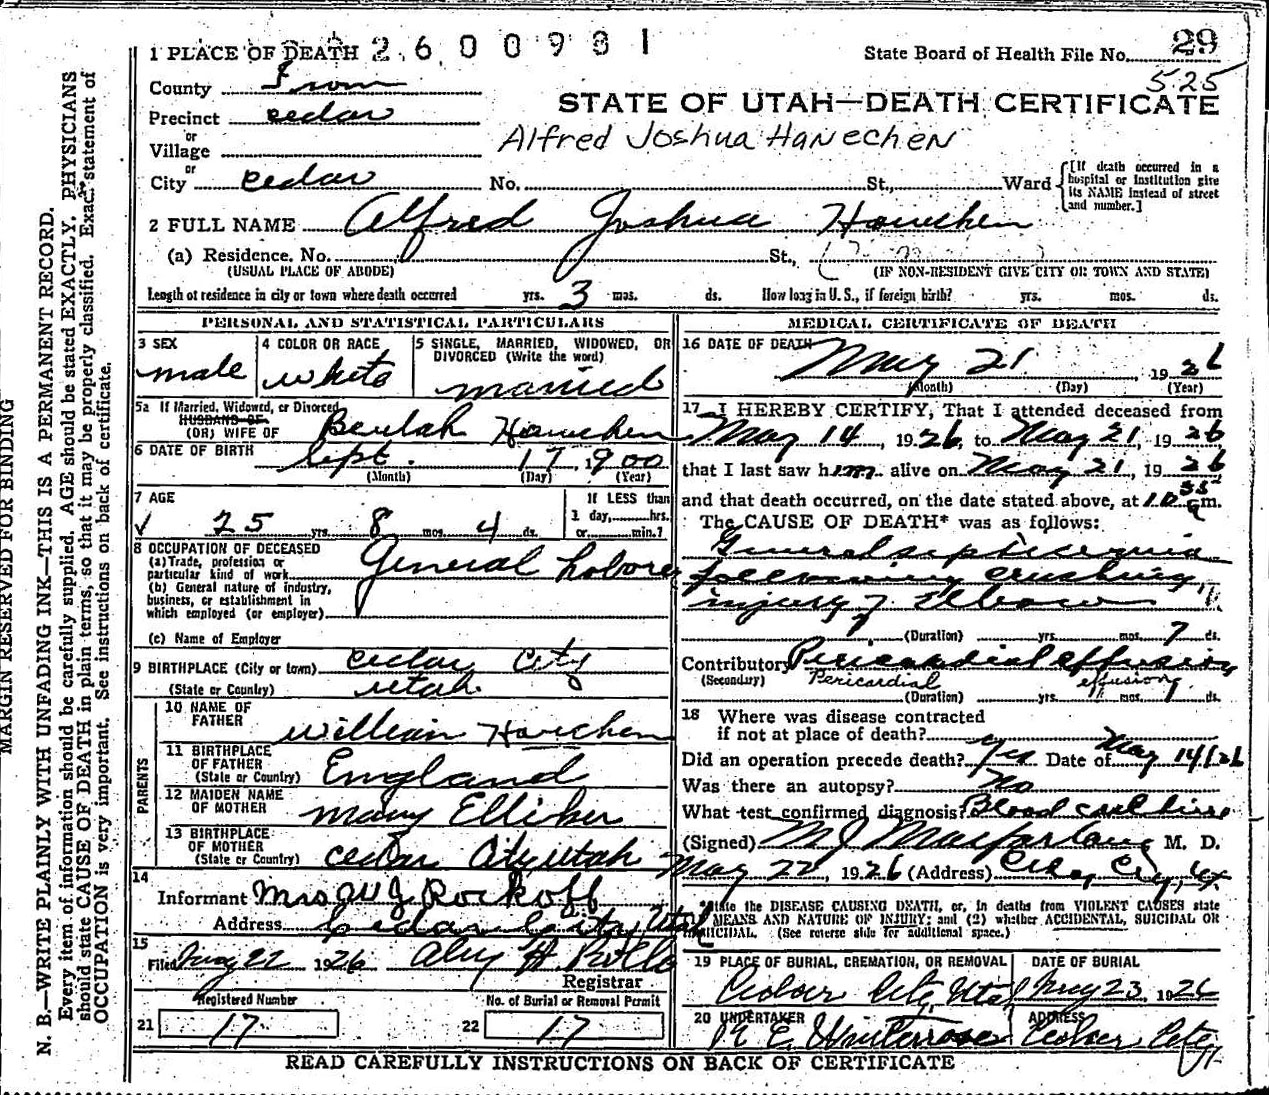 1 PLACE OF DEATH 2 6 0 0 9 8 1
State Board of Health File No. 29
525
County Iron
STATE OF UTAH—DEATH CERTIFICATE
Precinct cedar
or
Village
Alfred Joshua Hanechen
or
City cedar No. St., Ward
[If death occurred in a hospital or institution give its NAME instead of street and number.]
2 FULL NAME Alfred Joshua
(a) Residence. No. St.,
(USUAL PLACE OF ABODE) (IF NON-RESIDENT GIVE CITY OR TOWN AND STATE)
Length of residence in city or town where death occurred yrs. 3 mos. ds. How long in U. S., if foreign birth? yrs. mos. ds.
PERSONAL AND STATISTICAL PARTICULARS
3 SEX
male
4 COLOR OR RACE
white
5 SINGLE, MARRIED, WIDOWED, OR DIVORCED (Write the word)
married
5a If Married, Widowed, or Divorced
HUSBAND OF
(OR) WIFE OF Beulah
6 DATE OF BIRTH Sept. 17, 1900
(Month) (Day) (Year)
7 AGE
25 yrs. 8 mos. 4 ds.
If LESS than
1 day, hrs.
or min.?
8 OCCUPATION OF DECEASED
(a) Trade, profession or
particular kind of work General Laborer
(b) General nature of industry,
business, or establishment in
which employed (or employer)
(c) Name of Employer
9 BIRTHPLACE (City or town) cedar City
(State or Country) utah
PARENTS
10 NAME OF
FATHER william
11 BIRTHPLACE
OF FATHER
(State or Country) England
12 MAIDEN NAME
OF MOTHER mary Elliker
13 BIRTHPLACE
OF MOTHER
(State or Country) cedar City utah
14
Informant Mrs W J Rockoff
Address Cedar City, Utah
15
Filed May 22 1926
Registrar
Registered Number
21 17
No. of Burial or Removal Permit
22 17
MEDICAL CERTIFICATE OF DEATH
16 DATE OF DEATH May 21, 1926
(Month) (Day) (Year)
17 I HEREBY CERTIFY, That I attended deceased from
May 14, 1926, to May 21, 1926
that I last saw him alive on May 21, 1926
and that death occurred, on the date stated above, at 10 55 a m.
The CAUSE OF DEATH* was as follows:
General septicemia
following crushing
injury of Elbow
(Duration) yrs. mos. 7 ds.
Contributory Pericardial effusion
(Secondary) Pericardial effusion
(Duration) yrs. mos. 1 ds.
18 Where was disease contracted
if not at place of death?
Did an operation precede death? yes Date of May 14/26
Was there an autopsy? No
What test confirmed diagnosis? Blood culture
(Signed) M J Macfarlane M. D.
May 22, 1926 (Address) Cedar City, Ut
*State the DISEASE CAUSING DEATH, or, in deaths from VIOLENT CAUSES state
MEANS AND NATURE OF INJURY; and (2) whether ACCIDENTAL, SUICIDAL OR
HOMICIDAL. (See reverse side for additional space.)
19 PLACE OF BURIAL, CREMATION, OR REMOVAL
Cedar City, Utah
DATE OF BURIAL
May 23, 1926
20 UNDERTAKER
ADDRESS
Cedar City
READ CAREFULLY INSTRUCTIONS ON BACK OF CERTIFICATE
MARGIN RESERVED FOR BINDING
N. B.—WRITE PLAINLY WITH UNFADING INK—THIS IS A PERMANENT RECORD.
Every item of information should be carefully supplied. AGE should be stated EXACTLY. PHYSICIANS
should state CAUSE OF DEATH in plain terms, so that it may be properly classified. Exact statement of
OCCUPATION is very important. See instructions on back of certificate.